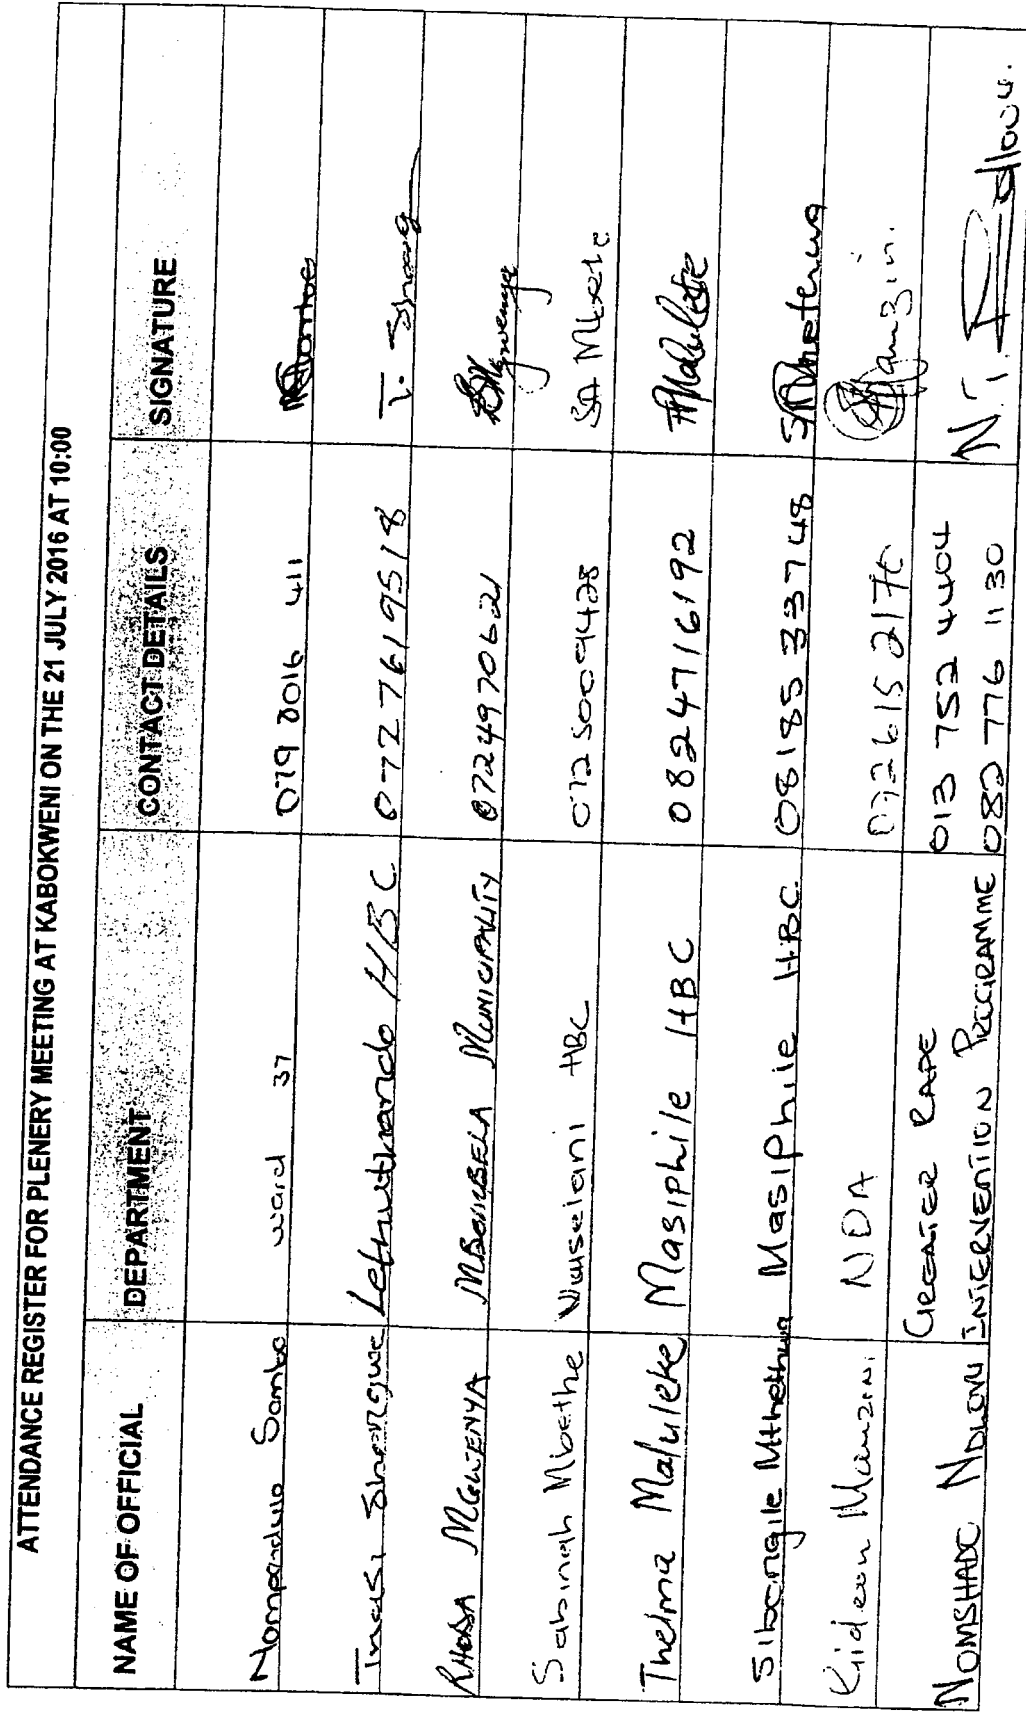 ATTENDANCE REGISTER FOR PLENERY MEETING AT KABOKWENI ON THE 21 JULY 2016 AT 10:00
NAME OF OFFICIAL DEPARTMENT CONTACT DETAILS SIGNATURE
Nompendulo Sambo ward 37 079 2016 411
Lethuthando HBC 0727619518
RHODA MGWENYA MBOMBELA MUNICIPALITY 0724970621
Sabinah Mbethe Vuselani HBC 0725009428 SA Mbethe
Thelma Maluleke Masiphile HBC 0824716192 T Maluleke
Sibongile Mthethwa Masiphile HBC 0818533748
Gideon Mamzini NDA
GREATER RAPE 013 752 4404
NOMSHADO NDLOVU INTERVENTION PROGRAMME 082 776 1130 N.T. Ndlovu.